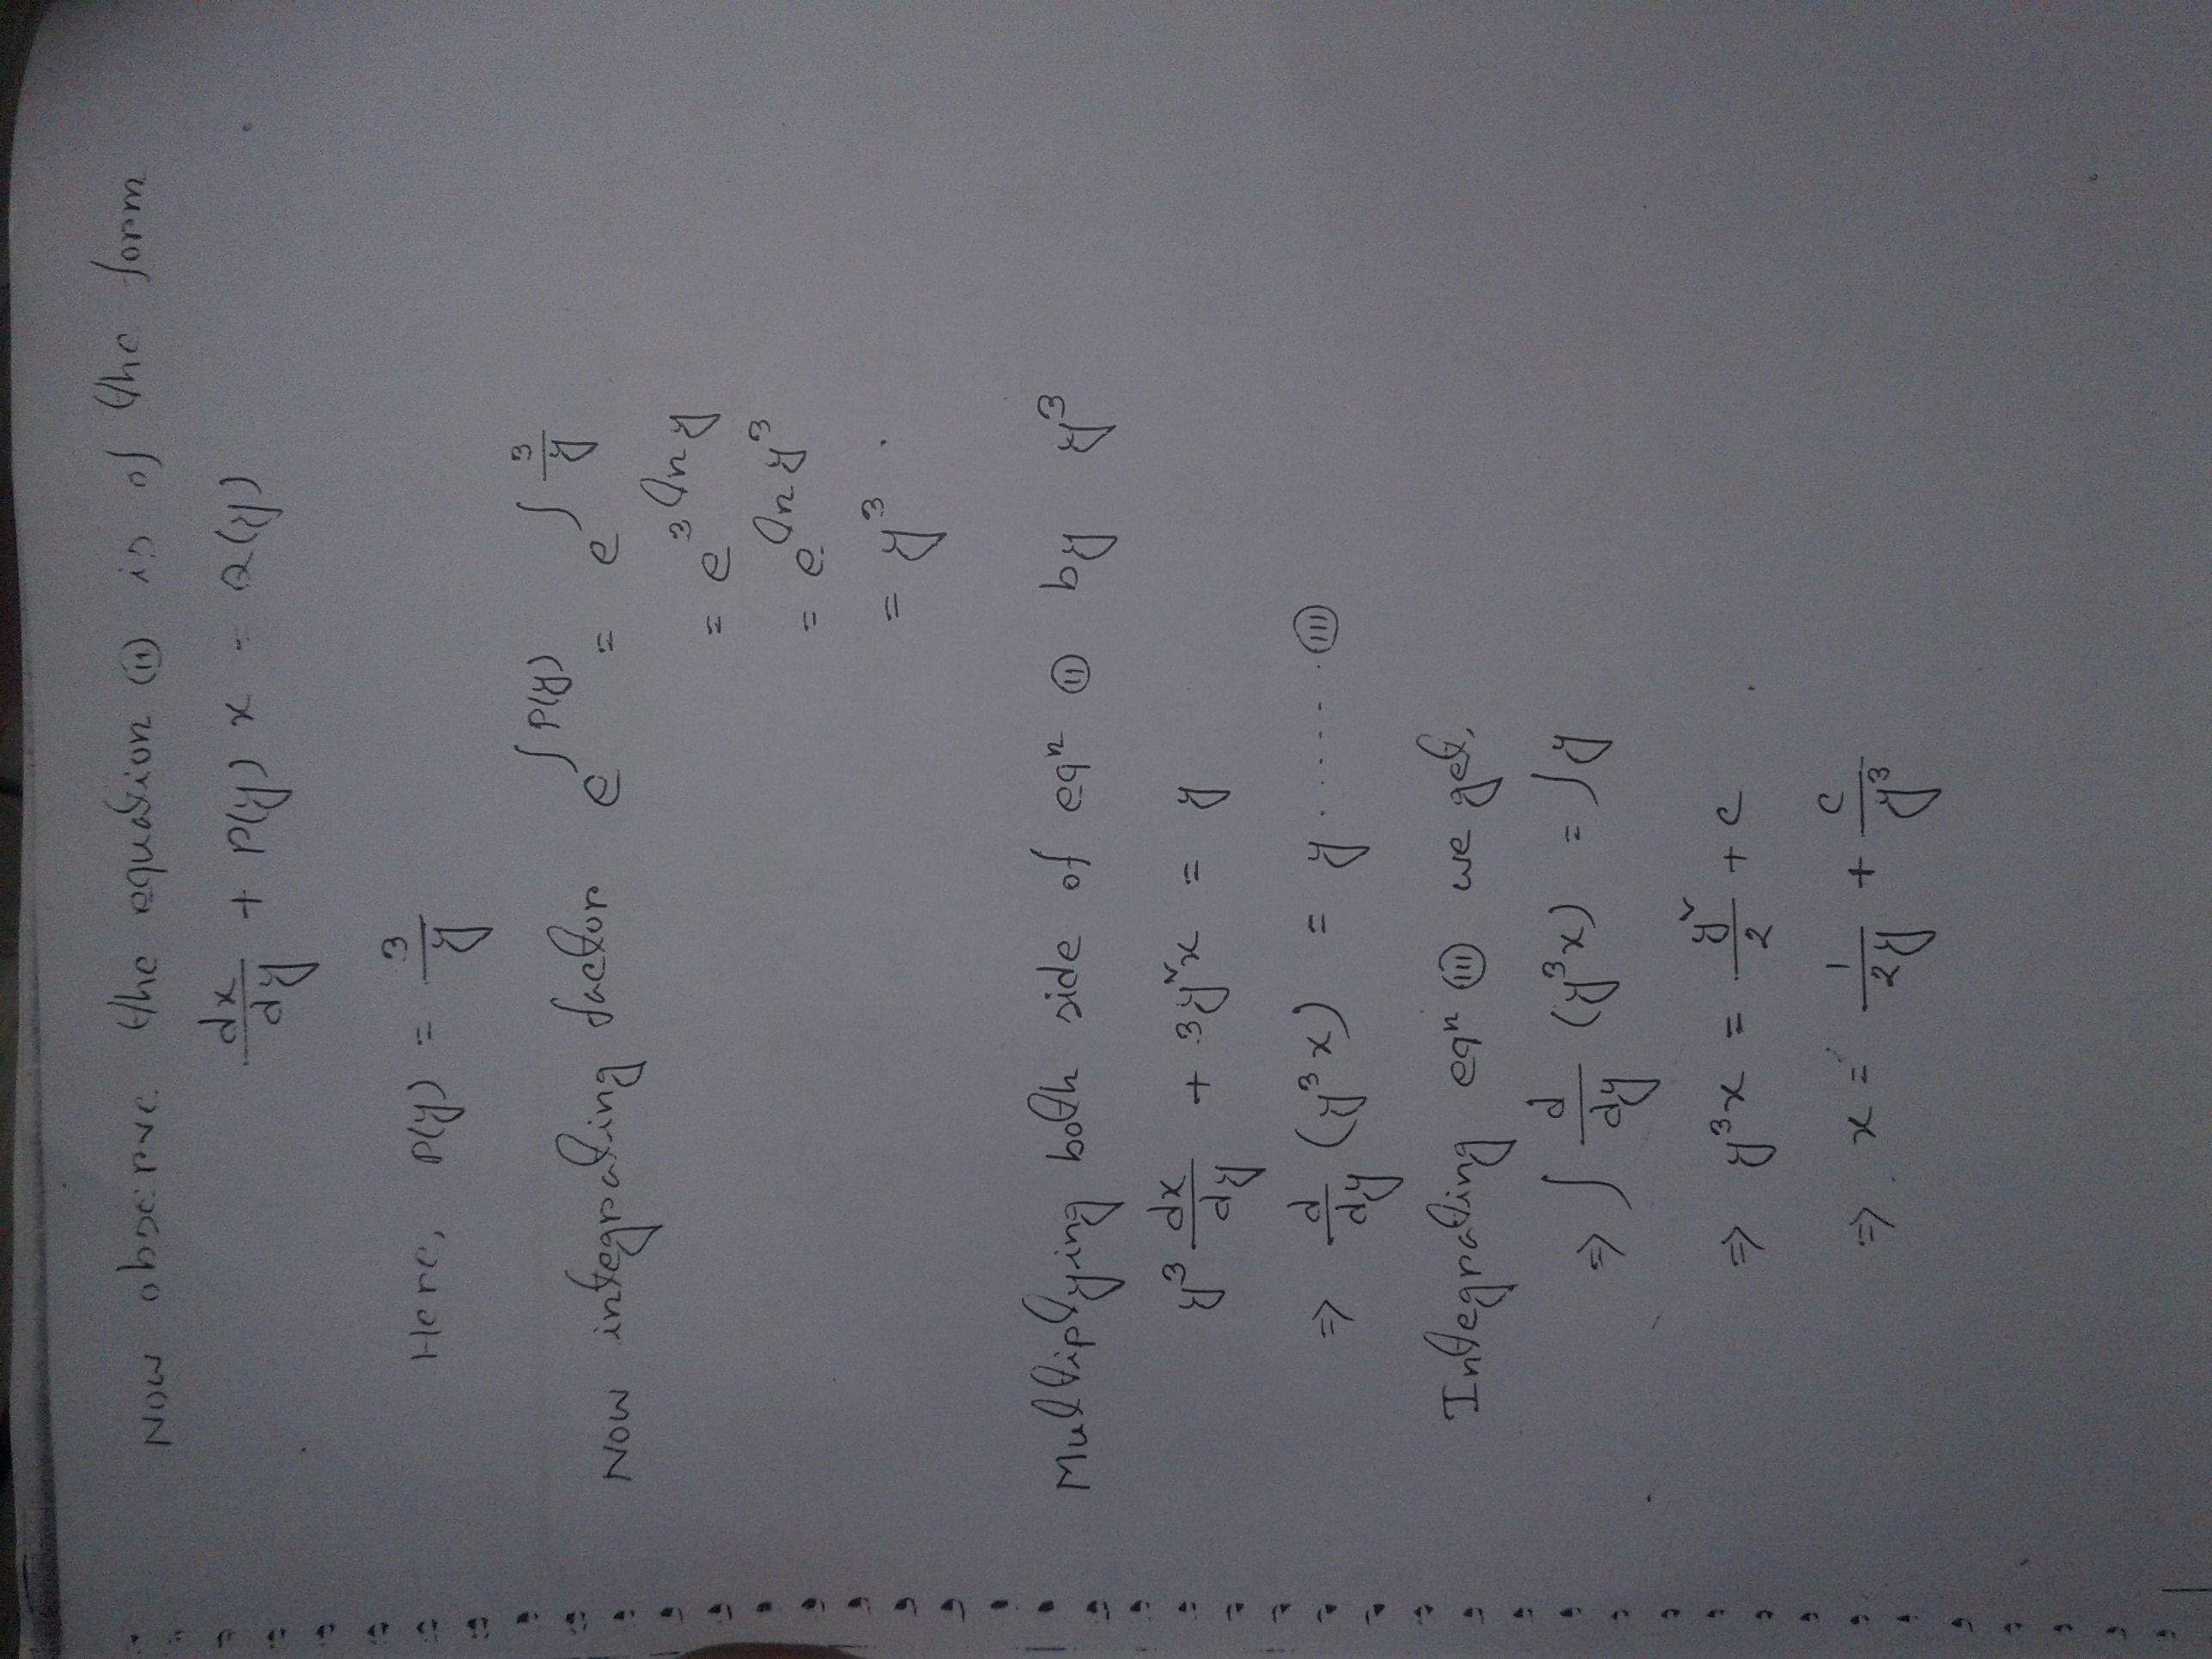 Now observe the equation (ii) is of the form
dx/dy + P(y) x = Q(y)
Here, P(y) = 3/y
Now integrating factor e^∫P(y) = e^∫3/y
= e^3 ln y
= e^ln y³
= y³ .
Multiplying both side of eqⁿ (ii) by y³
y³ dx/dy + 3y²x = y
⇒ d/dy (y³x) = y ....... (iii)
Integrating eqⁿ (iii) we get,
⇒ ∫ d/dy (y³x) = ∫y
⇒ y³x = y²/2 + c
⇒ x = 1/2y + c/y³